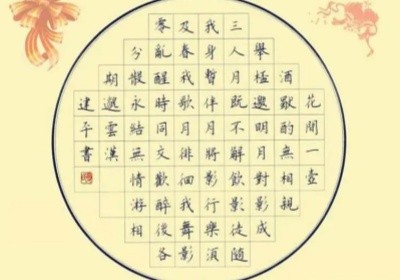 花間一壺
酒獨酌無相親
舉杯邀明月對影成
三人月既不解飲影徒隨
我身暫伴月將影行樂須
及春我歌月徘徊我舞影
零亂醒時同交歡醉後各
分散永結無情遊相
期邈雲漢
建平書